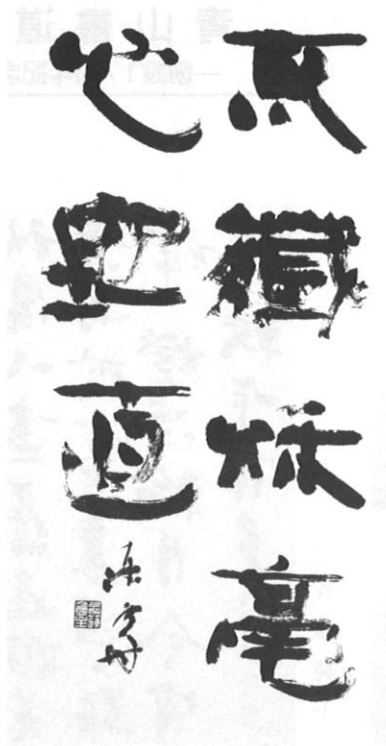 青山書道
不藏秋毫
心地直